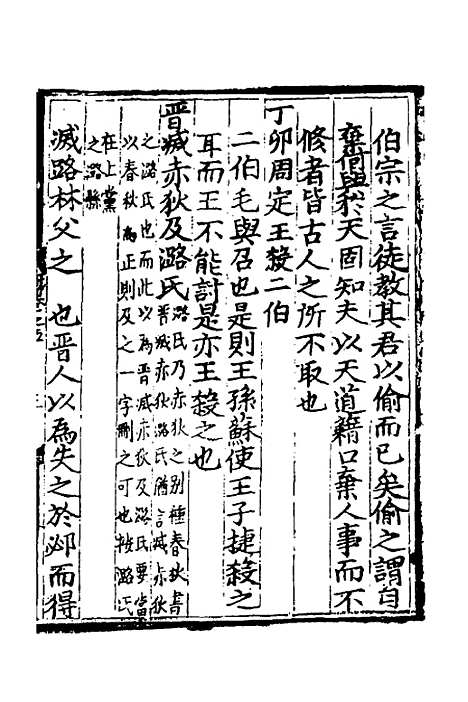 伯宗之言徒教其君以偷而已矣偷之謂自
棄何與於天固知夫以天道籍口棄人事而不
修者皆古人之所不取也
丁卯周定王殺二伯
二伯毛與召也是則王孫蘇使王子捷殺之
耳而王不能討是亦王殺之也
晋滅赤狄及潞氏
潞氏乃赤狄之别種春秋書
晋滅赤狄潞氏猶言滅赤狄
之潞氏也而此以為晋滅赤狄及潞氏要當
以春秋為正則及之一字刪之可也按潞氏
在上黨
之潞縣
滅路林父之 也晋人以為失之於邲而得